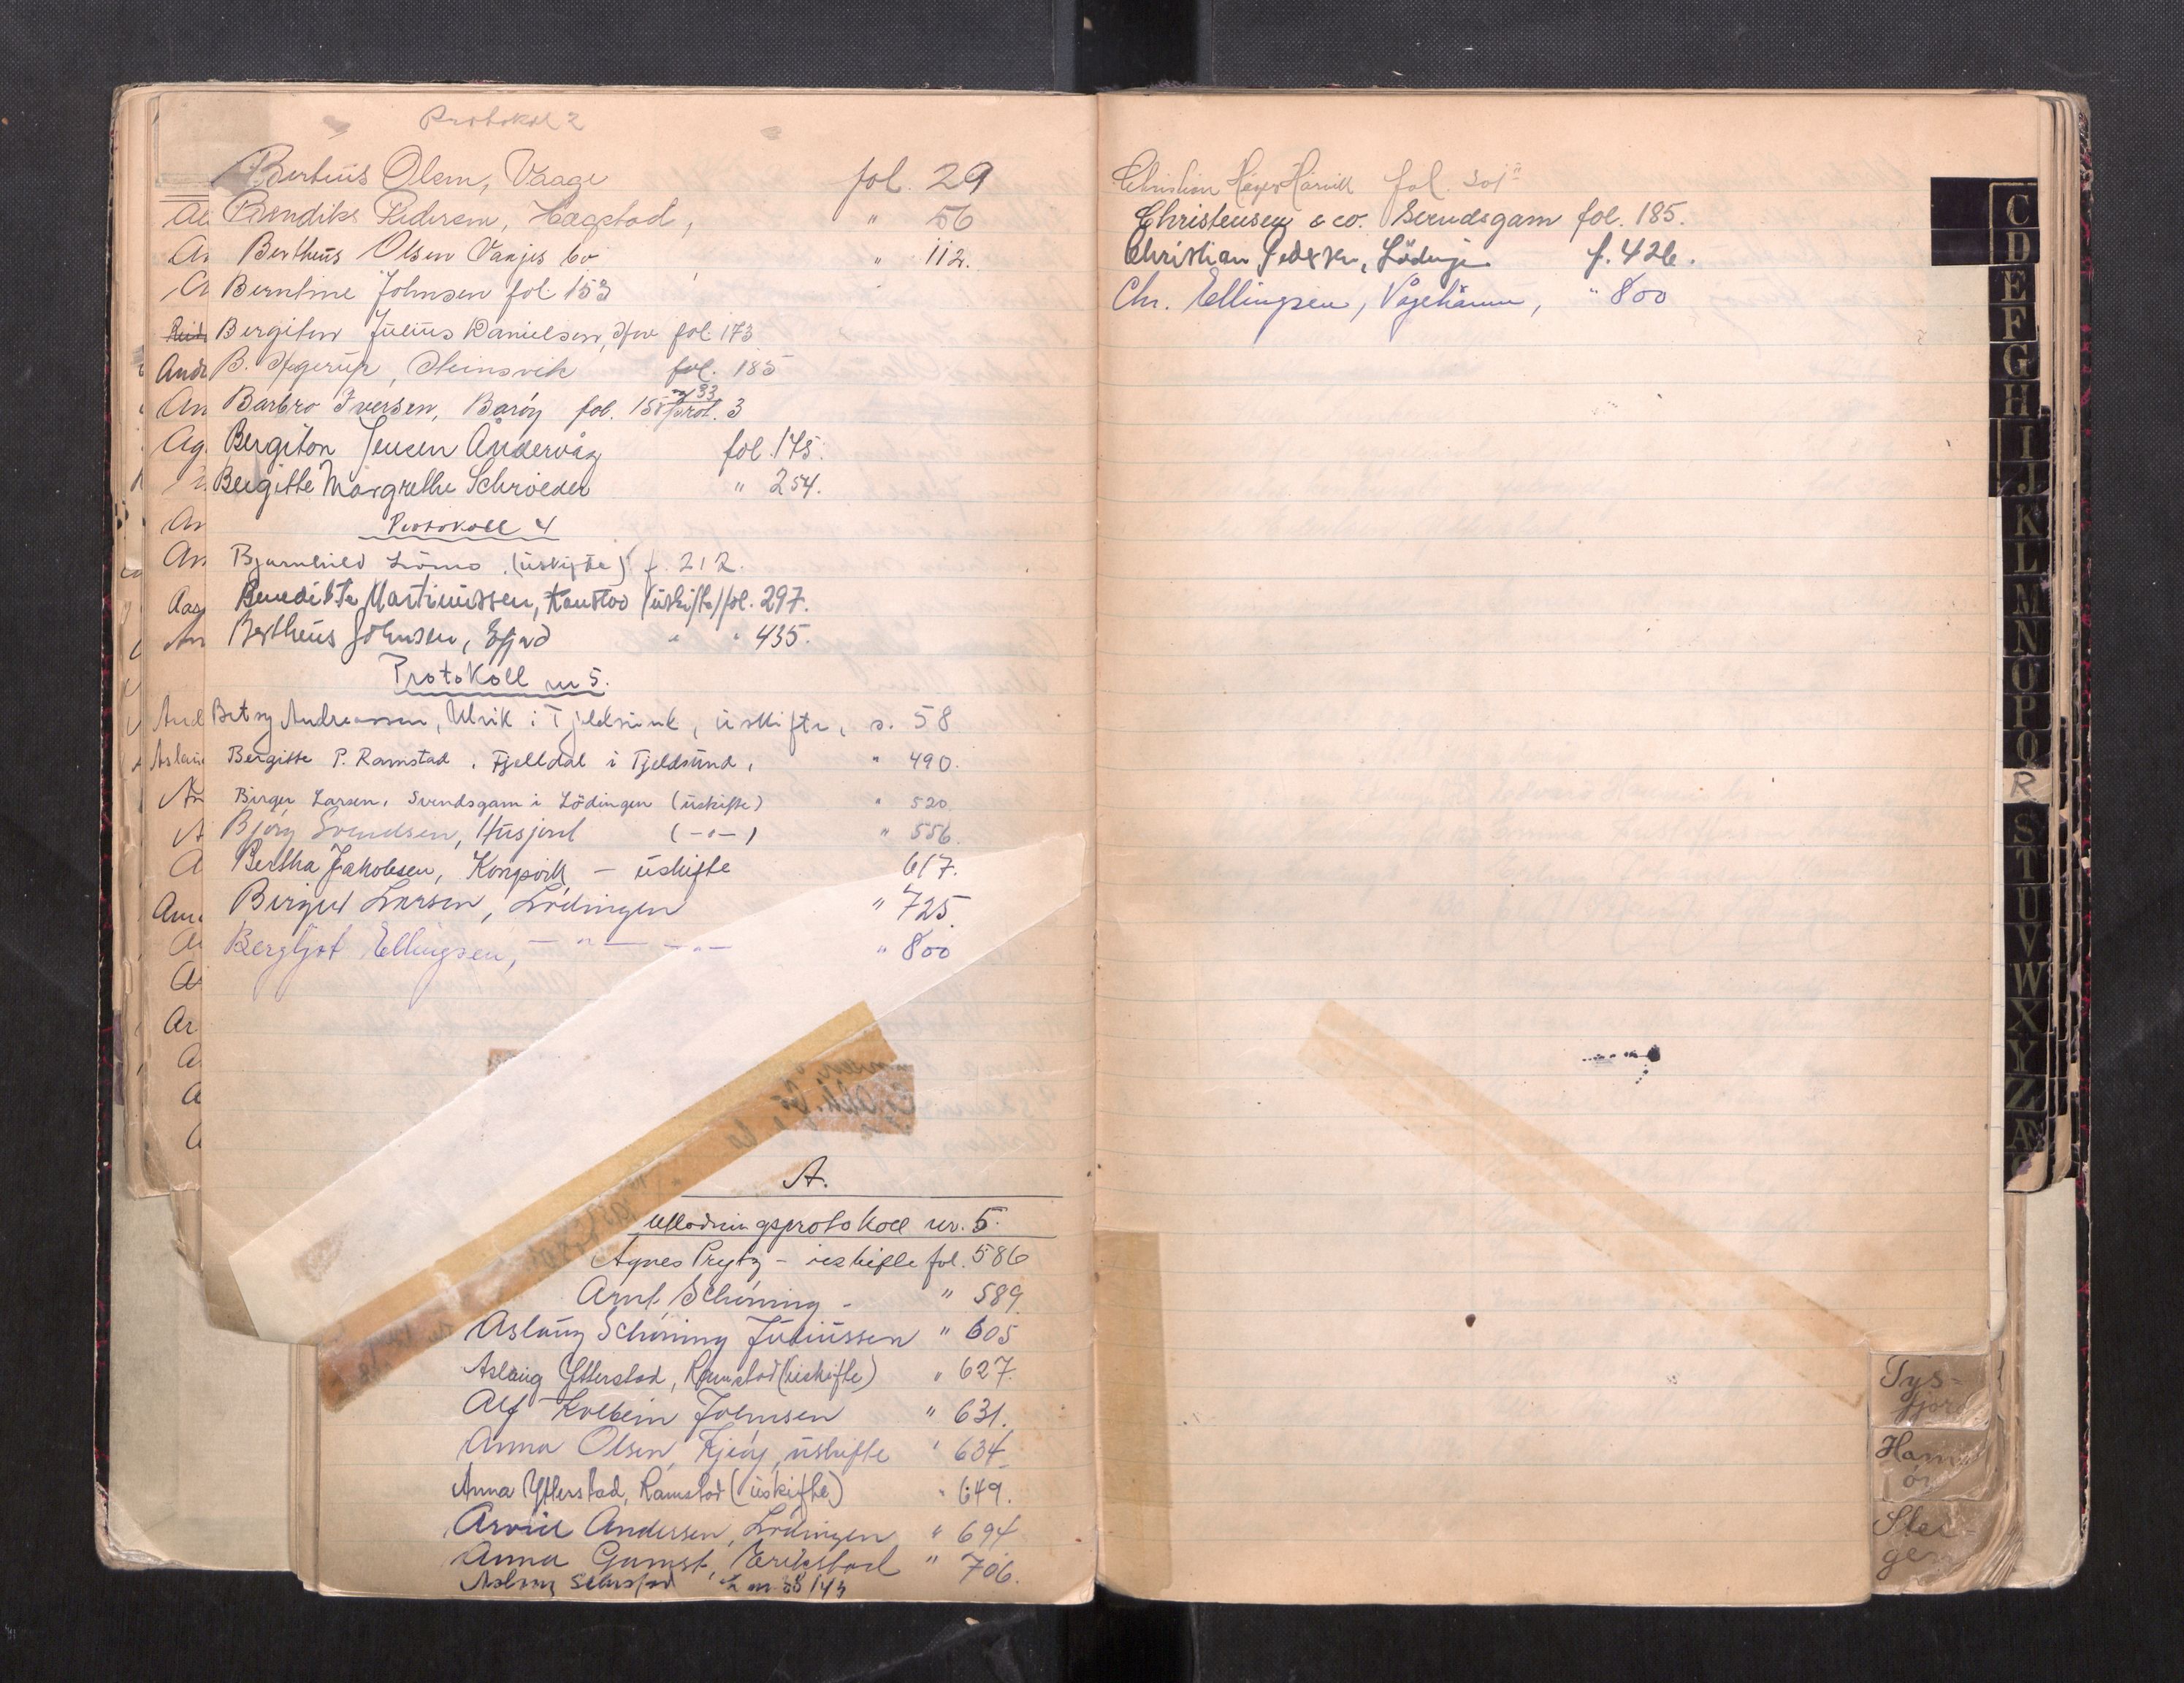 Protokol 2
Berteus Olsen, Vaage fol. 29
Bendiks Pedersen, Hægstad, " 56
Bertheus Olsen Vaajes bo " 112.
Berntine Johnsen fol 153
Bergiton Julius Danielsen, fol. 173
B. Hegerup, Steinsvik fol. 185
Barbro Iversen, Barøy fol. 155 og 33 prot. 3
Bergiton Jensen Åndervåg fol. 175.
Bergitte Margrethe Schrøeder " 254.
Protokoll 4
Bjarnhild Lömo (uskifte) f. 212.
Benedikte Martinussen, (uskifte) fol. 297.
Bertheus Johnsen, Efjord " " 435.
Protokoll nr 5.
Betzy Andreassen, Ulvik i Tjeldsund, uskifte, s. 58
Bergitte P. Ramstad, Fjelldal i Tjeldsund, " 490.
Birger Larsen, Svendsgam i Lödingen (uskifte) " 520.
Bjørg Svendsen, Husjord (-"-) " 556.
Bertha Jakobsen, Kongsvik - uskifte 617.
Birger Larsen, Lödingen " 725.
Bergljot Ellingsen, -"- -"- " 800
A.
Utlodningsprotokoll nr. 5.
Agnes Prytz - uskifte fol. 586
Arnt Schöning - " 589.
Aslaug Schöning Juliussen " 605
Aslaug Ytterstad, Ramstad (uskifte) " 627.
Alf Kolbein Johnsen " 631.
Anna Olsen, Kjeøy, uskifte " 634
Anna Ytterstad, Ramstad (uskifte) " 649.
Arvid Andersen, Lödingen " 694
Anna Gamst, Erikstad " 706.
Aslaug
Christian fol. 301
Christensen & co. Svendsgam fol. 185.
Christian Pedersen, Lödingen f. 426.
Chr. Ellingsen, Vågehamn, " 800
C
D
E
F
G
H
I
J
K
L
M
N
O
P
Q
R
S
T
U
V
W
X
Y
Z
Æ
Tys-
fjord
Ham
ör
Stei-
gen